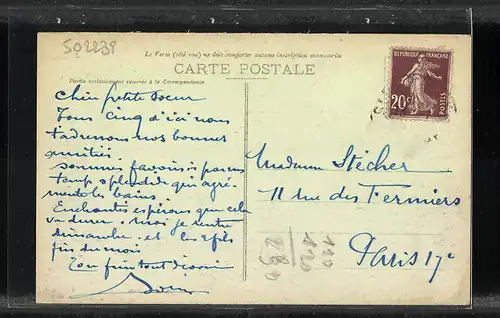 502238
Le Verso (côté vue) ne doit comporter aucune inscription manuscrite
CARTE POSTALE
Partie exclusivement réservée à la Correspondance
RÉPUBLIQUE FRANÇAISE
20c
POSTES
Chère petite soeur
Tous cinq d'ici nous
t'adressons nos bonnes
amitiés.
sommes favorisés par un
temps splendide qui agré-
mente les bains.
Enchantés espérons que cela
va durer. moi je rentre
dimanche et les 2 fils
fin du mois
Ton tout
Madame Stécher
11 rue des Fermiers
Paris 17e
110
120